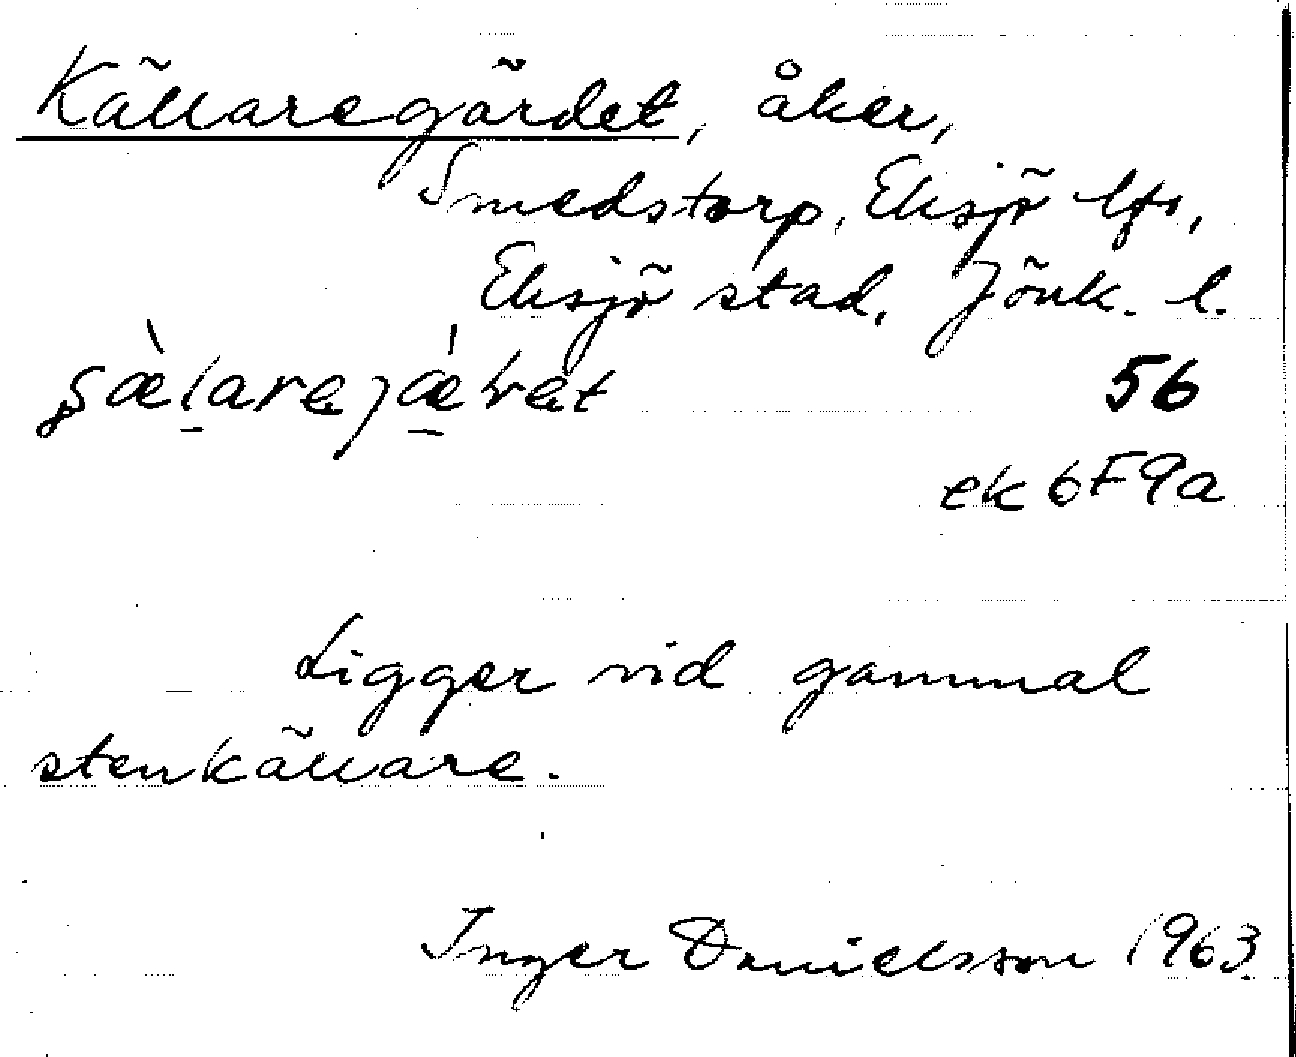 Källaregärdet, åker,
Smedstorp, Eksjö lfs,
Eksjö stad, Jönk. l.
56
ek 6F9a
Ligger vid gammal
stenkällare.
Inger Danielsson 1963